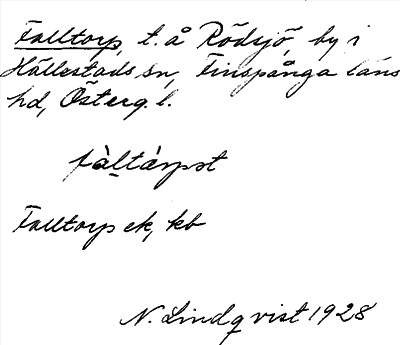 Falltorp, t. å Rödsjö, by i
Hällestads sn, Finspånga läns
hd, Österg. l.
fàltárpst
Falltorp ek, kb
N. Lindqvist 1928